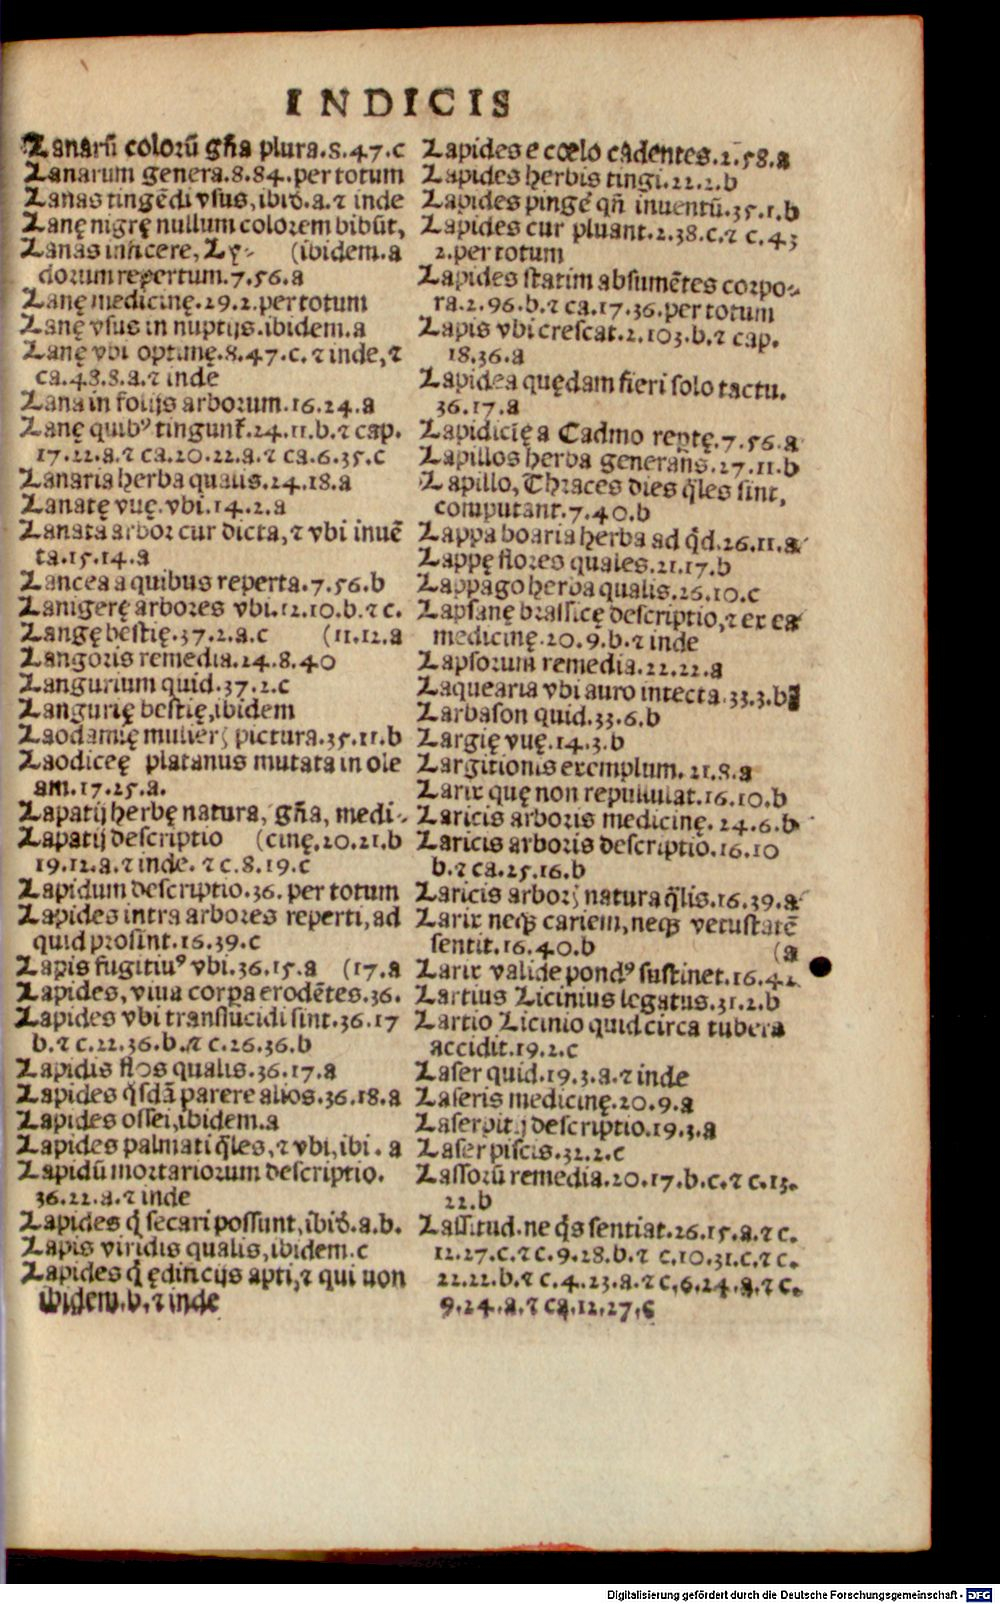 INDICIS
Lanarū colorū gñа plura.8.47.c
Lanarum genera.8.84.per totum
Lanas tingēdi vsus, ibið.a.⁊ inde
Lanę nigrę nullum colorem bibūt,
Lanas inficere, Ly- (ibidem.a
dorum repertum.7.56.a
Lanę medicinę.29.2.per totum
Lanę vsus in nuptijs.ibidem.a
Lanę vbi optimę.8.47.c.⁊ inde,⁊
ca.48.8.a.⁊ inde
Lana in folijs arborum.16.24.a
Lanę quibꝰ tingunt̄.24.11.b.⁊ cap.
17.22.a.⁊ ca.20.22.a.⁊ ca.6.35.c
Lanaria herba qualis.24.18.a
Lanatę vuę.vbi.14.2.a
Lanata arbor cur dicta,⁊ vbi inuē
ta.15.14.a
Lancea a quibus reperta.7.56.b
Lanigerę arbores vbi.12.10.b.⁊ c.
Langę bestię.37.2.a.c (11.12.a
Langoris remedia.24.8.40
Langurium quid.37.2.c
Langurię bestię,ibidem
Laodamię mulierꝭ pictura.35.11.b
Laodiceę platanus mutata in ole
am.17.25.a.
Lapatij herbę natura, gña, medi-
Lapatij descriptio (cinę.20.21.b
19.12.a.⁊ inde. ⁊ c.8.19.c
Lapidum descriptio.36. per totum
Lapides intra arbores reperti, ad
quid prosint.16.39.c
Lapis fugitiuꝰ vbi.36.15.a (17.a
Lapides, viua corpa erodētes.36.
Lapides vbi translucidi sint.36.17
b.⁊ c.22.36.b.⁊ c.26.36.b
Lapidis flos qualis.36.17.a
Lapides q̄sdā parere alios.36.18.a
Lapides ossei,ibidem.a
Lapides palmati q̄les,⁊ vbi,ibi.a
Lapidū mortariorum descriptio.
36.22.a.⁊ inde
Lapides q̇ secari possunt,ibið.a.b.
Lapis viridis qualis,ibidem.c
Lapides q̇ ędificijs apti,⁊ qui non
ibidem.b.⁊ inde
Lapides e cœlo cadentes.2.58.a
Lapides herbis tingi.22.2.b
Lapides pingē qñ inuentū.35.1.b
Lapides cur pluant.2.38.c.⁊ c.43
2.per totum
Lapides statim absumētes corpo-
ra.2.96.b.⁊ ca.17.36.per totum
Lapis vbi crescat.2.103.b.⁊ cap.
18.36.a
Lapidea quędam fieri solo tactu.
36.17.a
Lapidicię a Cadmo reptę.7.56.a
Lapillos herba generans.27.11.b
Lapillo, Thraces dies q̄les sint,
computant.7.40.b
Lappa boaria herba ad q̇d.26.11.a
Lappę flores quales.21.17.b
Lappago herba qualis.26.10.c
Lapsanę brassicę descriptio,⁊ ex ea
medicinę.20.9.b.⁊ inde
Lapsorum remedia.22.22.a
Laquearia vbi auro intecta.33.3.b
Larbason quid.33.6.b
Largię vuę.14.3.b
Largitionis exemplum.21.8.a
Larix quę non repullulat.16.10.b
Laricis arboris medicinę.24.6.b
Laricis arboris descriptio.16.10
b.⁊ ca.25.16.b
Laricis arborꝭ natura q̄lis.16.39.a
Larix neqꝫ cariem, neqꝫ vetustatē
sentit.16.40.b (a
Larix valide pondꝰ sustinet.16.42
Lartius Licinius legatus.31.2.b
Lartio Licinio quid circa tubera
accidit.19.2.c
Laser quid.19.3.a.⁊ inde
Laseris medicinę.20.9.a
Laserpitij descriptio.19.3.a
Laser piscis.32.2.c
Lassorū remedia.20.17.b.c.⁊ c.13.
22.b
Lassitud.ne q̇s sentiat.26.15.a.⁊ c.
12.27.c.⁊ c.9.28.b.⁊ c.10.31.c.⁊ c.
22.22.b.⁊ c.4.23.a.⁊ c.6.24.a.⁊ c.
9.24.a.⁊ ca.12.27.c
Digitalisierung gefördert durch die Deutsche Forschungsgemeinschaft - DFG